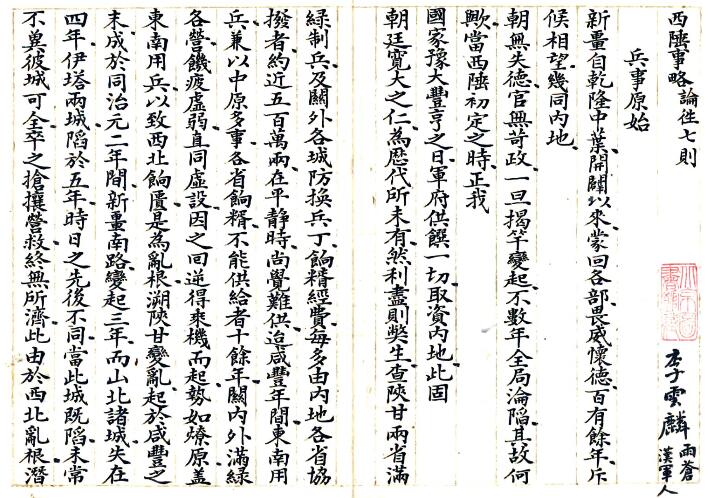 西陲事略論往七則
李雲麟雨蒼漢軍人
兵事原始
新疆自乾隆中葉開闢以來蒙回各部畏威懷德百有餘年斥
候相望幾同內地
朝無失德官無苛政一旦揭竿變起不數年全局淪陷其故何
歟當西陲初定之時正我
國家豫大豐亨之日軍府供饌一切取資內地此固
朝廷寬大之仁為歷代所未有然利盡則獘生查陝甘兩省滿
綠制兵及關外各城防換兵丁餉糈經費每多由內地各省協
撥者約近五百萬兩在平靜時尚覺難供迨咸豐年間東南用
兵兼以中原多事各省餉糈不能供給者十餘年關內外滿綠
各營饑疲虛弱直同虛設因之回逆得乘機而起勢如燎原蓋
東南用兵以致西北餉匱是為亂根溯陝甘變亂起於咸豐之
末成於同治元二年間新畺南路變起三年而山北諸城失在
四年伊塔兩城陷於五年時日之先後不同當此城既陷未常
不兾彼城可全卒之搶攘營救終無所濟此由於西北亂根潛